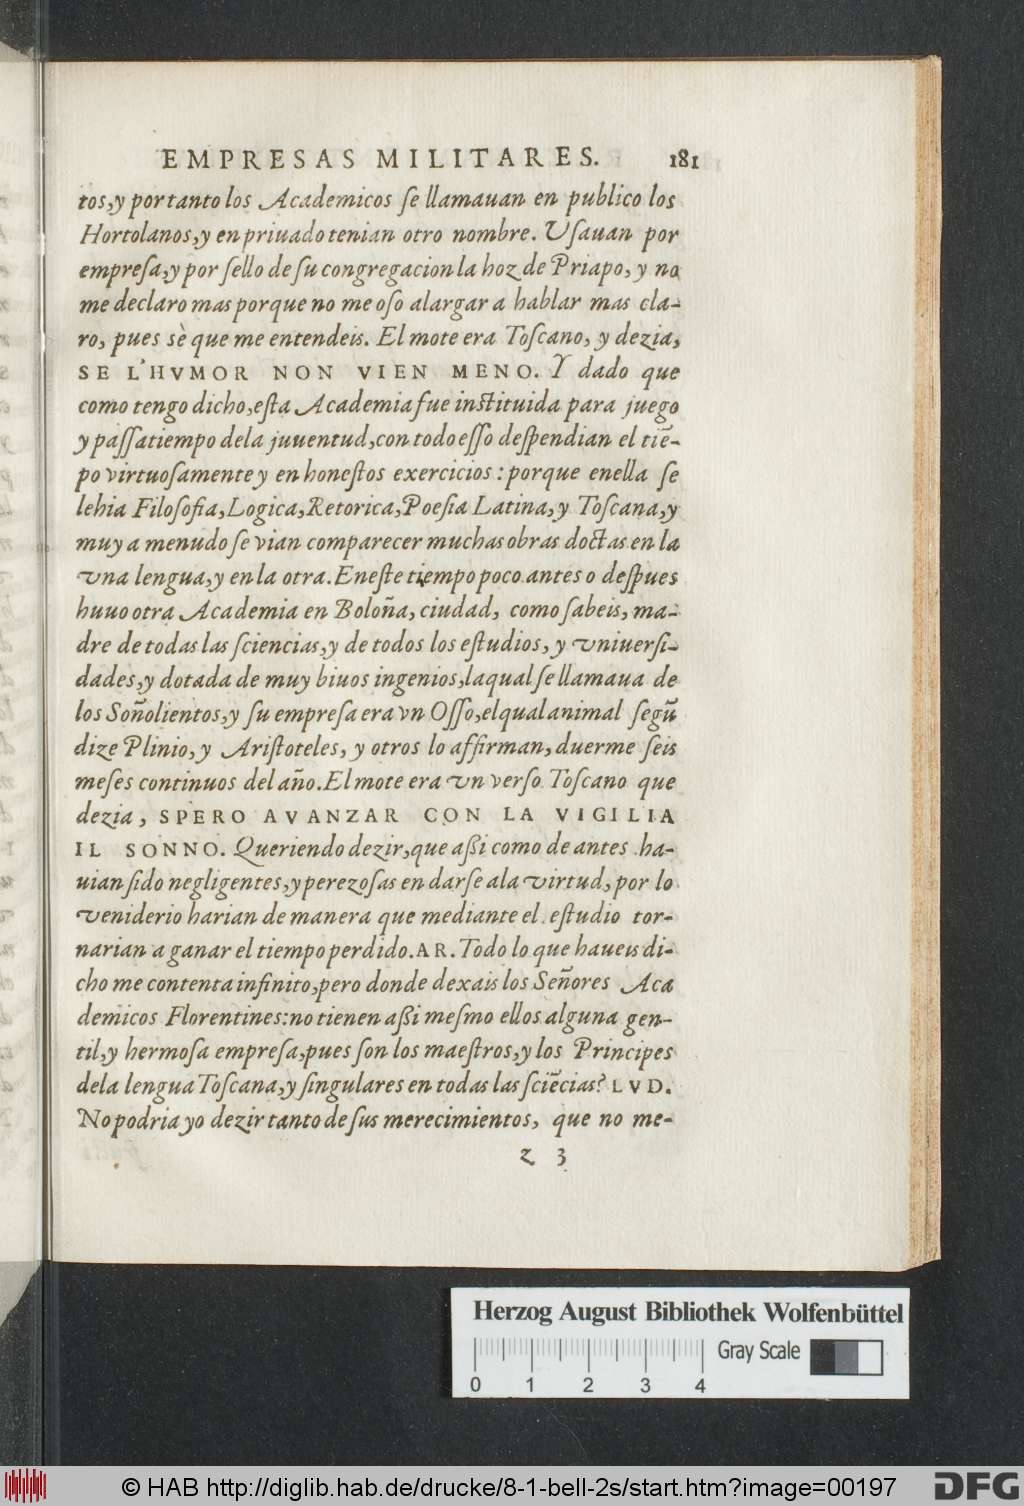 EMPRESAS MILITARES. 181
tos,y por tanto los Academicos se llamauan en publico los
Hortolanos,y en priuado tenian otro nombre. Vsauan por
empresa,y por sello de su congregacion la hoz de Priapo, y no
me declaro mas porque no me oso alargar a hablar mas cla-
ro, pues sè que me entendeis. El mote era Toscano, y dezia,
SE L'HVMOR NON VIEN MENO. Y dado que
como tengo dicho,esta Academia fue instituida para juego
y passatiempo dela juuentud,con todo esso despendian el tiē-
po virtuosamente y en honestos exercicios : porque enella se
lehia Filosofia,Logica,Retorica,Poesia Latina,y Toscana,y
muy a menudo se vian comparecer muchas obras doctas en la
vna lengua,y en la otra. Eneste tiempo poco antes o despues
huuo otra Academia en Boloña, ciudad, como sabeis, ma-
dre de todas las sciencias,y de todos los estudios, y vniuersi-
dades,y dotada de muy biuos ingenios,laqual se llamaua de
los Soñolientos,y su empresa era vn Osso,elqual animal segū
dize Plinio,y Aristoteles, y otros lo affirman, duerme seis
meses continuos del año. El mote era vn verso Toscano que
dezia, SPERO AVANZAR CON LA VIGILIA
IL SONNO. Queriendo dezir,que assi como de antes ha-
uian sido negligentes,y perezosas en darse ala virtud, por lo
veniderio harian de manera que mediante el estudio tor-
narian a ganar el tiempo perdido. AR. Todo lo que haueis di-
cho me contenta infinito,pero donde dexais los Señores Aca
demicos Florentines:no tienen assi mesmo ellos alguna gen-
til,y hermosa empresa,pues son los maestros,y los Principes
dela lengua Toscana,y singulares en todas las sciēcias? LVD.
No podria yo dezir tanto de sus merecimientos, que no me-
z 3
Herzog August Bibliothek Wolfenbüttel
Gray Scale
0 1 2 3 4
© HAB http://diglib.hab.de/drucke/8-1-bell-2s/start.htm?image=00197
DFG